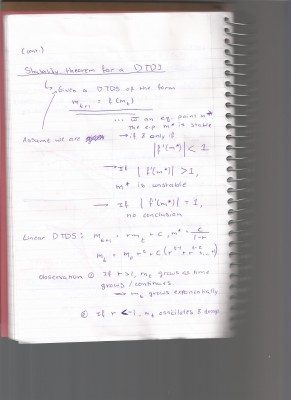 (cont.)
Stability theorem for a DTDS
Given a DTDS of the form
m_{t+1} = f(m_t)
... an eq. point m*
The e.p. m* is stable
Assume we are → if & only if
|f'(m*)| < 1
→ If |f'(m*)| > 1,
m* is unstable
→ If |f'(m*)| = 1,
no conclusion
Linear DTDS: m_{t+1} = rm_t + c, m* =
Observation ① If r > 1, m_t grows as time
grows / continues
→ m_t grows exponentially.
② If r < -1, m_t oscillates &